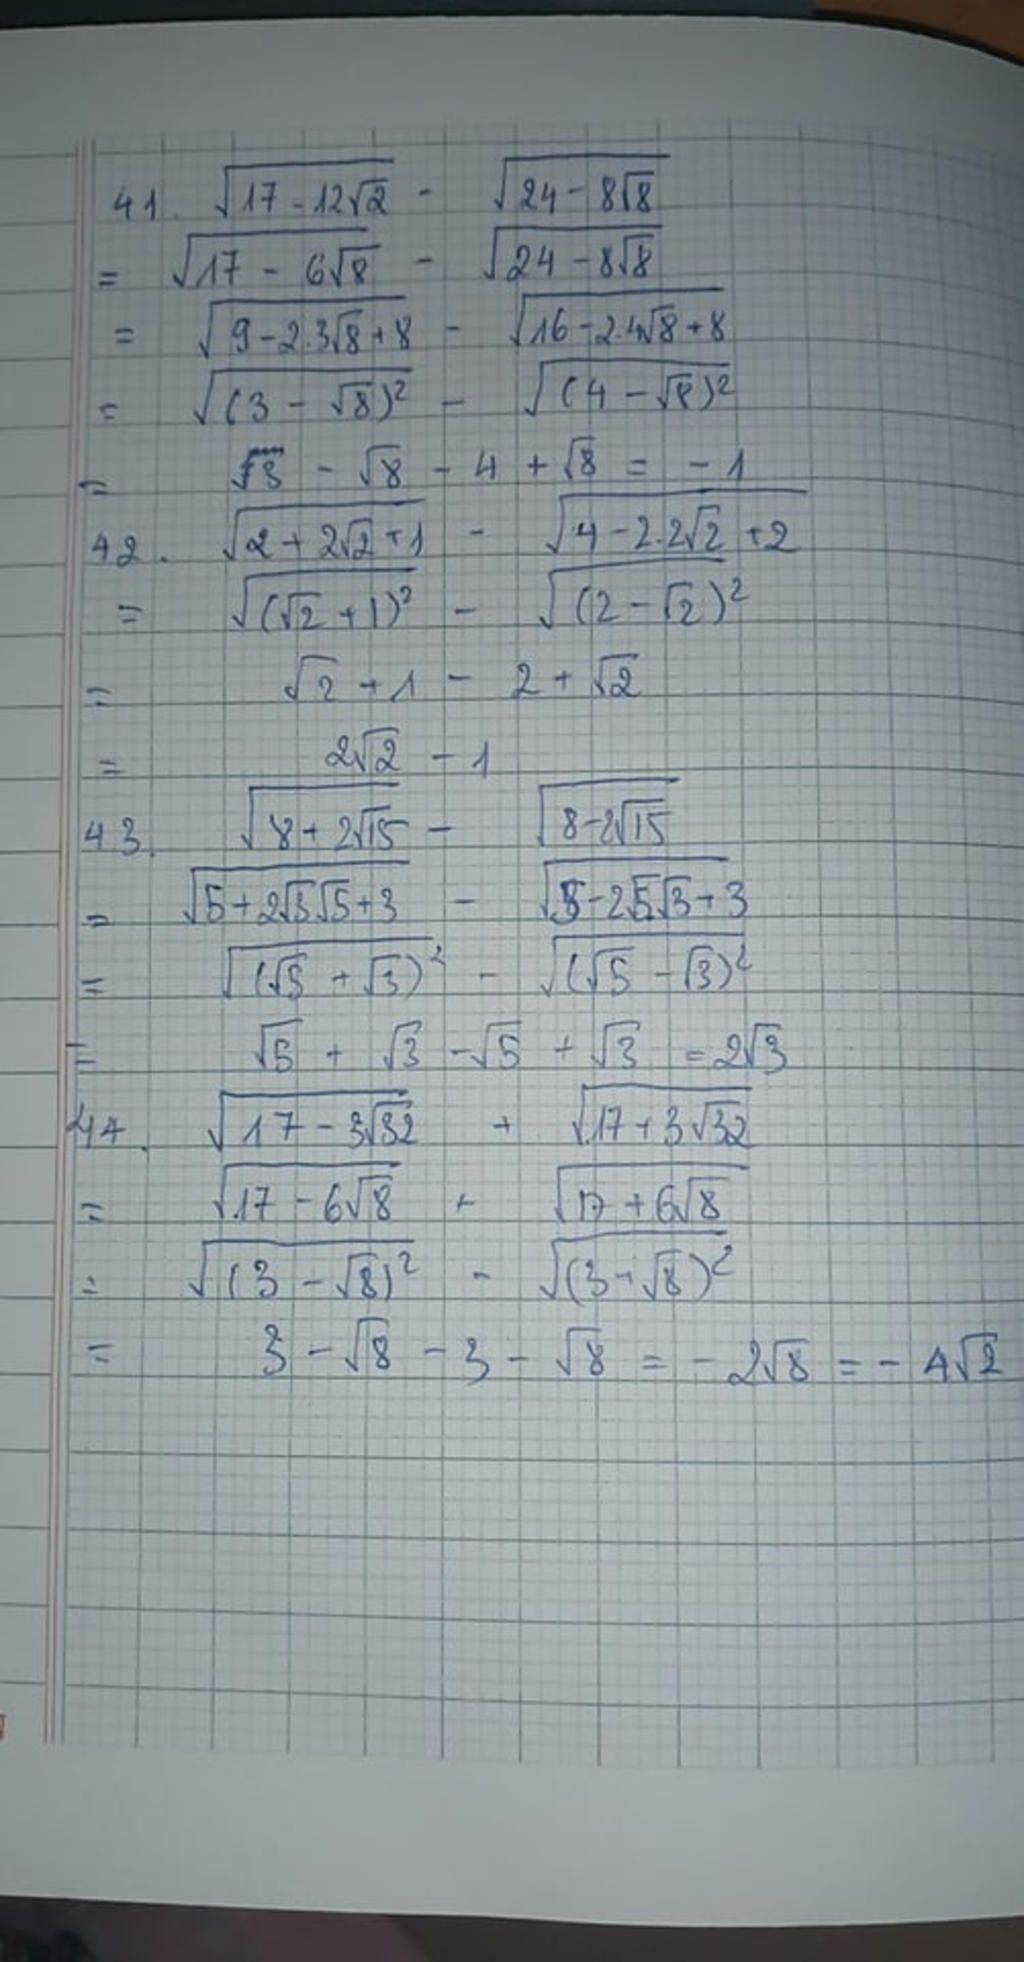 41. √(17 - 12√2) - √(24 - 8√8)
= √(17 - 6√8) - √(24 - 8√8)
= √(9 - 2.3√8 + 8) - √(16 - 2.4√8 + 8)
= √((3 - √8)²) - √((4 - √8)²)
= 3 - √8 - 4 + √8 = -1
42. √(2 + 2√2 + 1) - √(4 - 2.2√2 + 2)
= √((√2 + 1)²) - √((2 - √2)²)
= √2 + 1 - 2 + √2
= 2√2 - 1
43. √(8 + 2√15) - √(8 - 2√15)
= √(5 + 2√3√5 + 3) - √(5 - 2√5√3 + 3)
= √((√5 + √3)²) - √((√5 - √3)²)
= √5 + √3 - √5 + √3 = 2√3
44. √(17 - 3√32) + √(17 + 3√32)
= √(17 - 6√8) + √(17 + 6√8)
= √((3 - √8)²) - √((3 + √8)²)
= 3 - √8 - 3 - √8 = -2√8 = -4√2